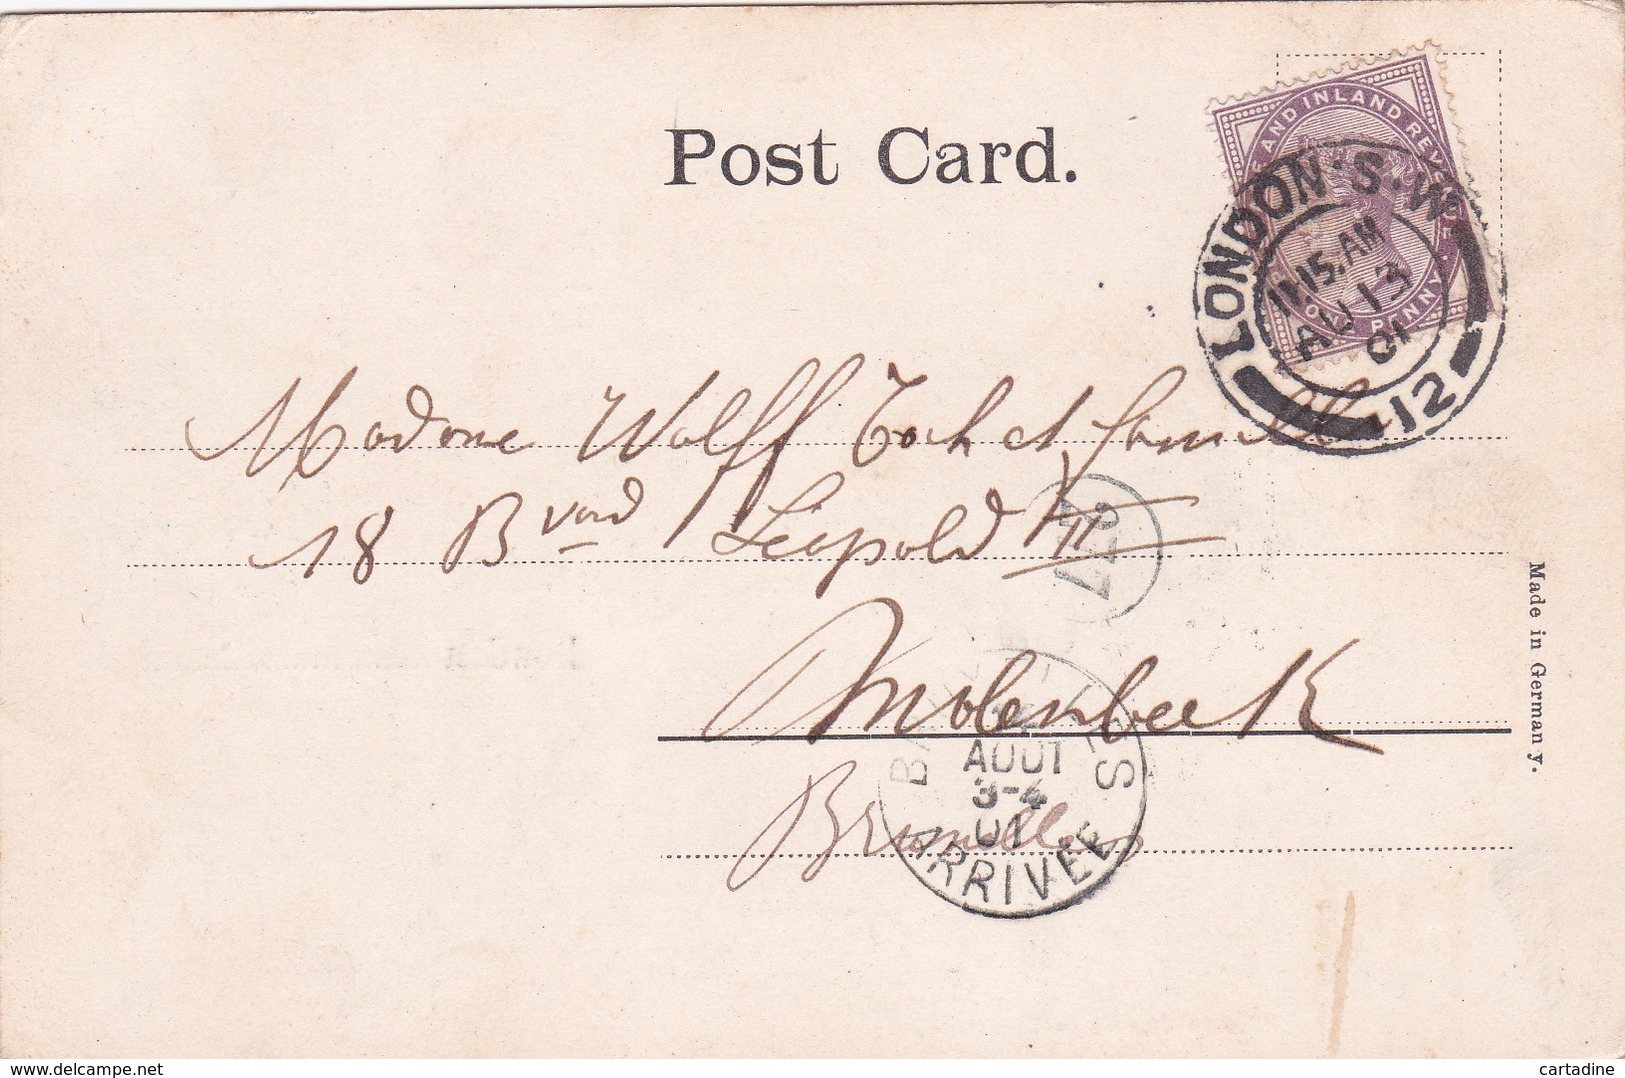 Post Card.
AND INLAND REV
ONE PENNY.
LONDON·S·W
11.15.AM
AU 13
01
12
Madame Wolff Toch et famille
18 Bvard Léopold II
277
Molenbeek
AOUT
3-4
01
ARRIVEE
Bruxelles
Made in Germany.
delcampe.net
cartadine